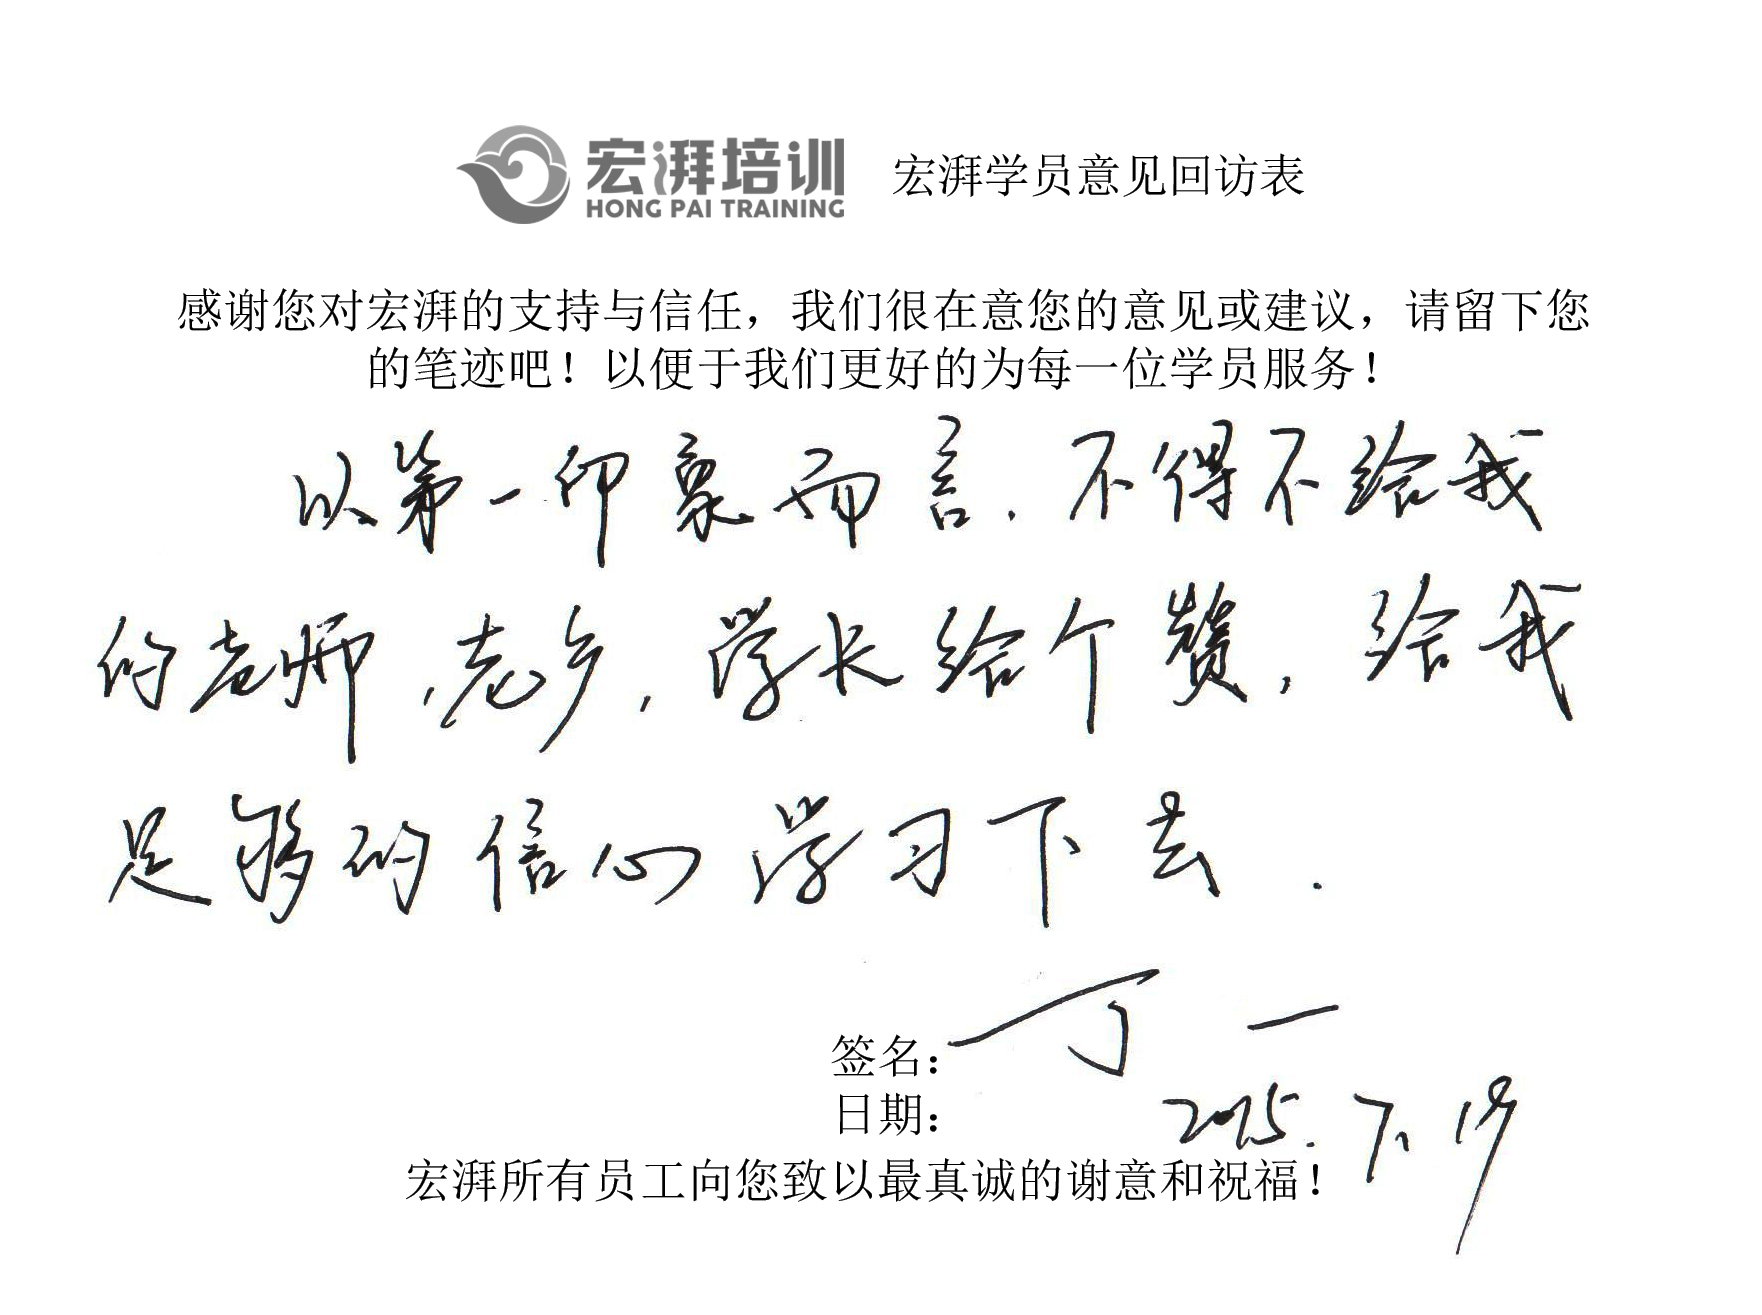 宏湃培训 宏湃学员意见回访表
HONG PAI TRAINING
感谢您对宏湃的支持与信任，我们很在意您的意见或建议，请留下您
的笔迹吧！以便于我们更好的为每一位学员服务！
以第一印象而言.不得不给我
的老师,老乡,学长给个赞,给我
足够的信心学习下去.
签名：丁一
日期：2015.7.19
宏湃所有员工向您致以最真诚的谢意和祝福！